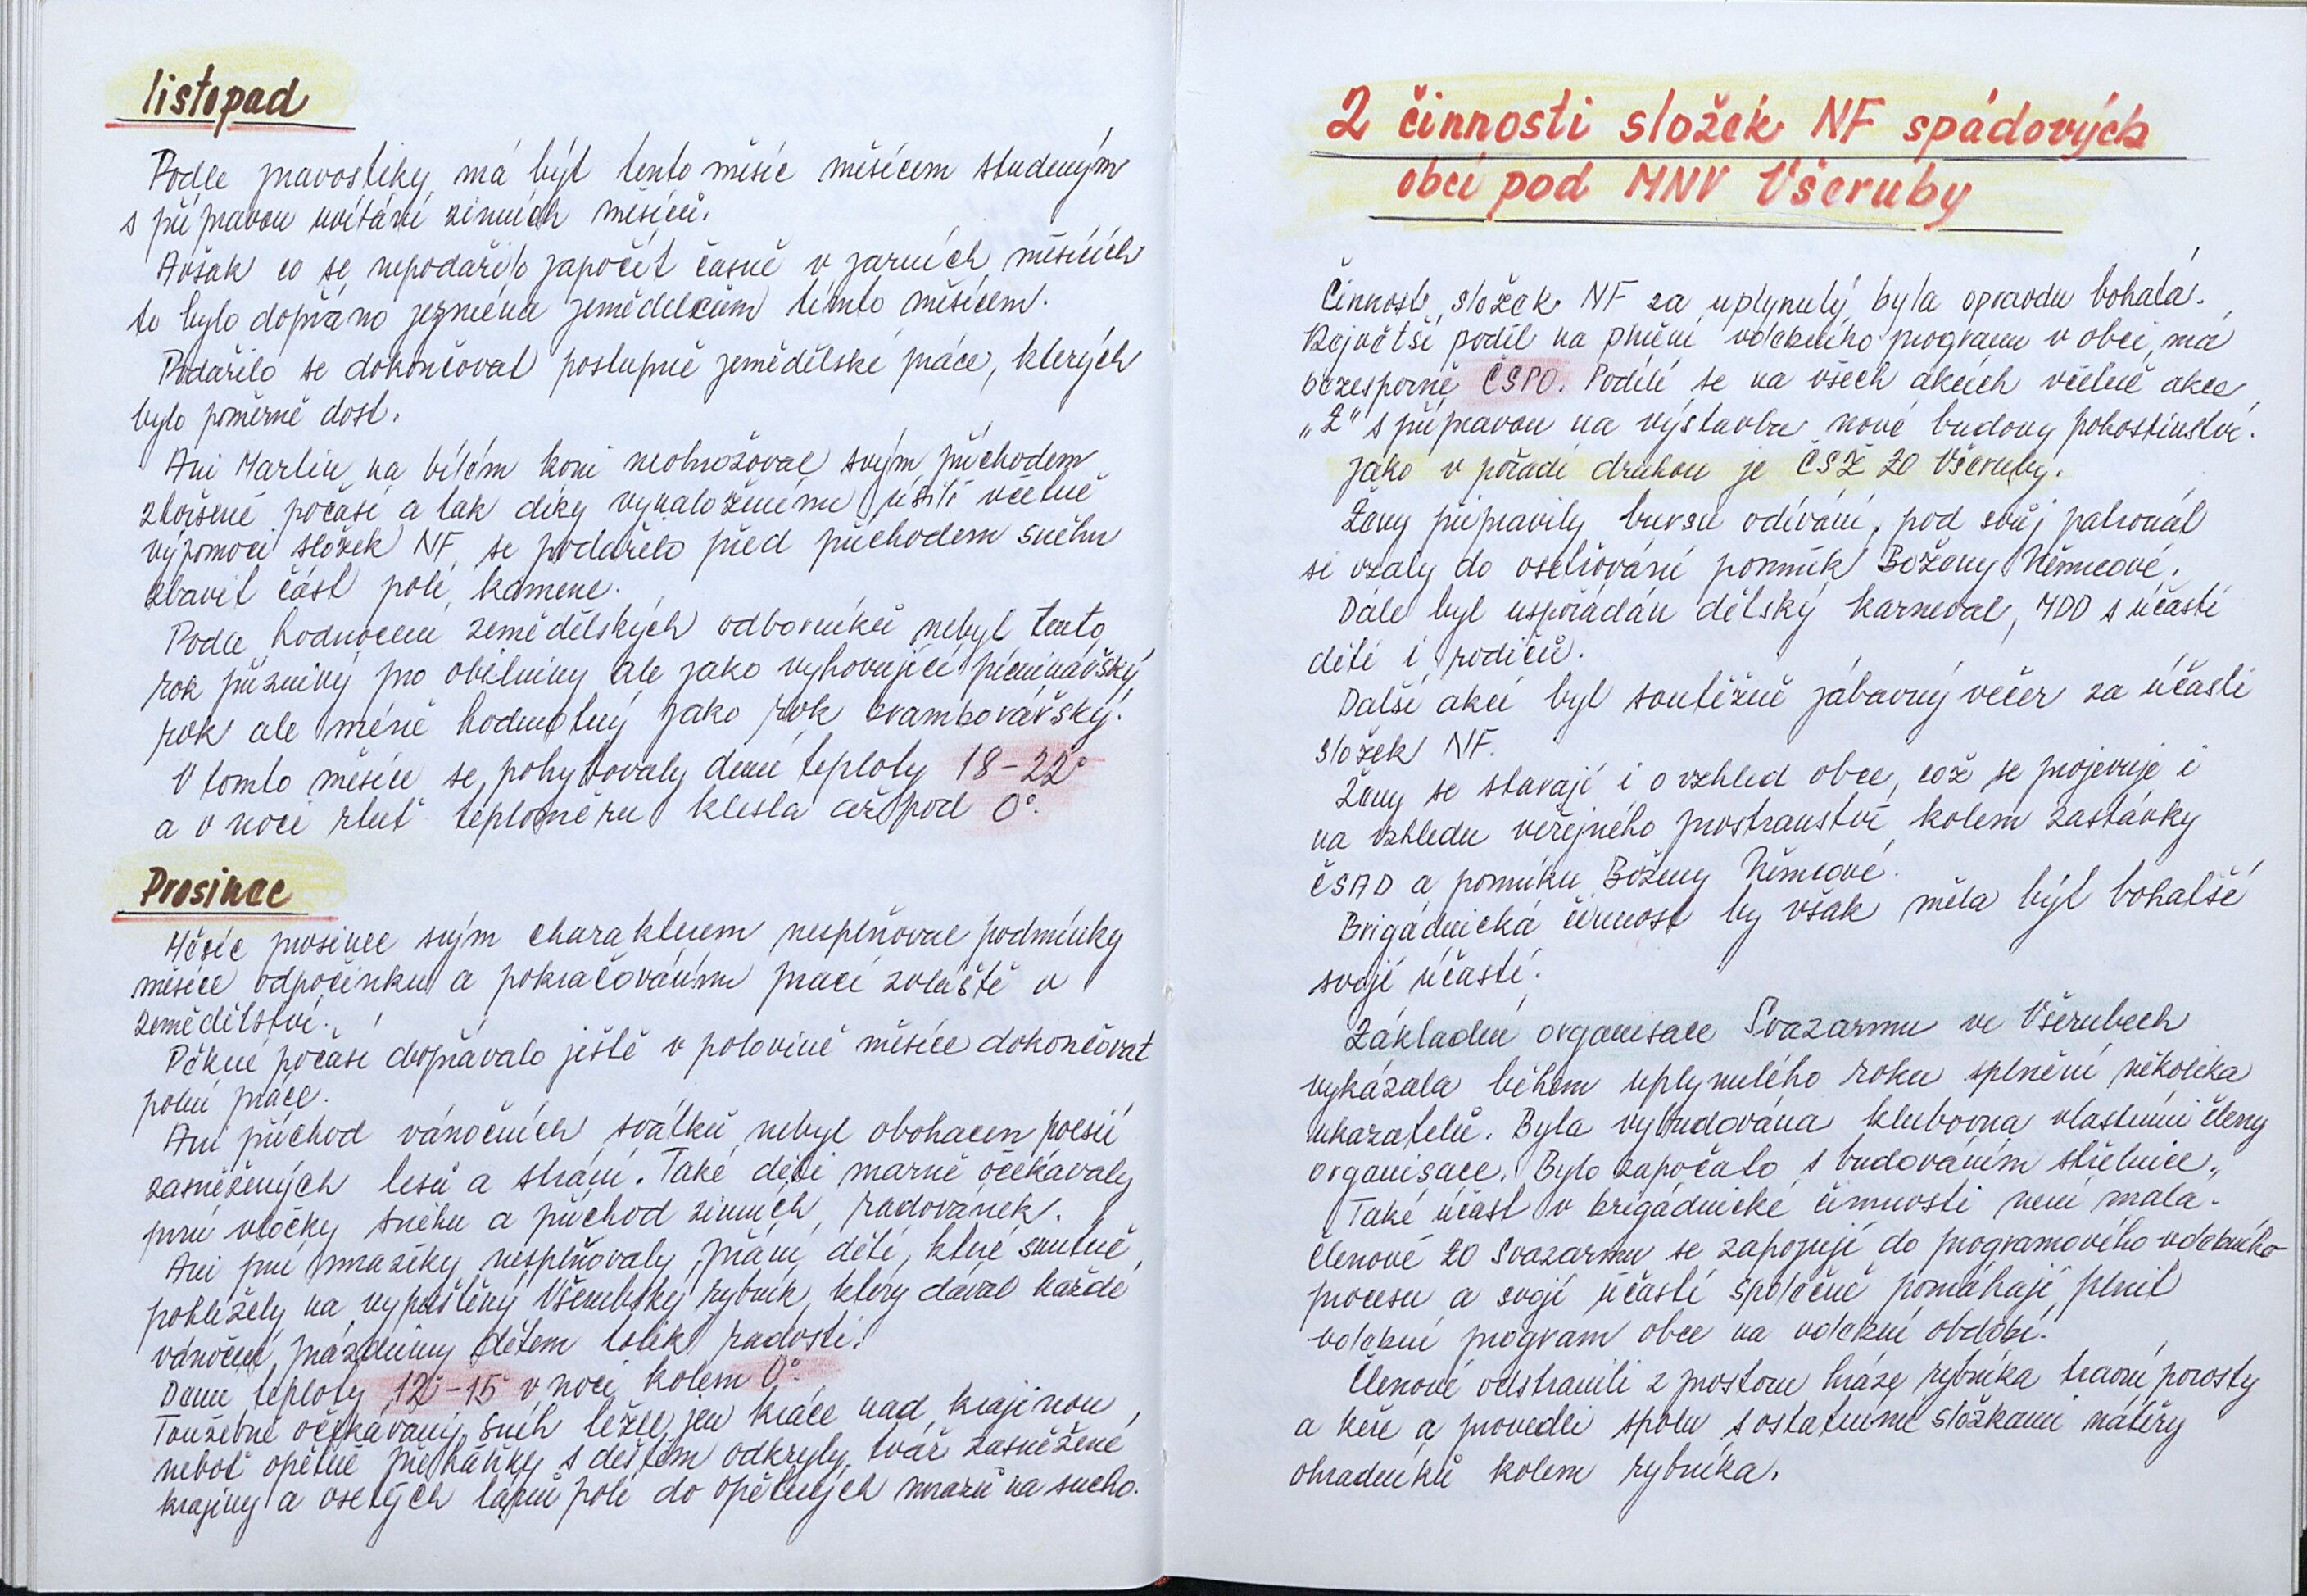 listopad
Podle pranostiky má být tento měsíc měsícem studeným
s přípravou uvítání zimních měsíců.
Avšak co se nepodařilo započít časně v jarních měsících
to bylo dopřáno zejména zemědělcům tímto měsícem.
Podařilo se dokončovat postupně zemědělské práce, kterých
bylo poměrně dost.
Ani Martin na bílém koni neohrožoval svým příchodem
zhoršené počasí a tak díky vynaloženému úsilí včetně
výpomoci složek NF se podařilo před příchodem sněhu
zbavit část polí kamene.
Podle hodnocení zemědělských odborníků nebyl tento
rok příznivý pro obilniny ale jako vyhovující pícninářský
rok ale méně hodnotný jako rok bramborářský.
V tomto měsíci se pohybovaly denní teploty 18-22°
a v noci rtuť teploměru klesla až pod 0°.
Prosinec
Měsíc prosinec svým charakterem nesplňoval podmínky
měsíce odpočinku a pokračováním prací zvláště v
zemědělství.
Pěkné počasí dopřávalo ještě v polovině měsíce dokončovat
polní práce.
Ani příchod vánočních svátků nebyl obohacen poesií
zasněžených lesů a strání. Také děti marně očekávaly
první vločky sněhu a příchod zimních radovánek.
Ani první mrazíky nesplňovaly přání dětí, které smutně
pohlížely na vypuštěný Všerubský rybník, který dával každé
vánoční prázdniny dětem tolik radosti.
Denní teploty 12°-15° v noci kolem 0°.
Toužebně očekávaný sníh ležel jen krátce nad krajinou
neboť opětné přeháňky s deštěm odkryly tvář zasněžené
krajiny a osetých lánů polí do opětných mrazů na sucho.
Z činnosti složek NF spádových
obcí pod MNV Všeruby
Činnost složek NF za uplynulý byla opravdu bohatá.
Největší podíl na plnění volebního programu v obci, má
bezesporně ČSPO. Podílí se na všech akcích včetně akce
„Z" s přípravou na výstavbu nové budovy pohostinství.
jako v pořadí druhou je ČSŽ ZO Všeruby.
Ženy připravily bursu odívání, pod svůj patronát
si vzaly do ošetřování pomník Boženy Němcové.
Dále byl uspořádán dětský karneval, MDD s účastí
dětí i rodičů.
Další akcí byl soutěžně zábavný večer za účasti
složek NF.
Ženy se starají i o vzhled obce, což se projevuje i
na vzhledu veřejného prostranství kolem zastávky
ČSAD a pomníku Boženy Němcové.
Brigádnická činnost by však měla být bohatší
svojí účastí.
Základní organisace Svazarmu ve Všerubech
vykázala během uplynulého roku splnění několika
ukazatelů. Byla vybudována klubovna vlastními členy
organisace. Bylo započato s budováním střelnice.
Také účast v brigádnické činnosti není malá.
Členové ZO Svazarmu se zapojují do programového volebního
procesu a svojí účastí společně pomáhají plnit
volební program obce na volební období.
Členové odstranili z prostoru hráze rybníka travní porosty
a keře a provedli spolu s ostatními složkami nátěry
ohradníků kolem rybníka.